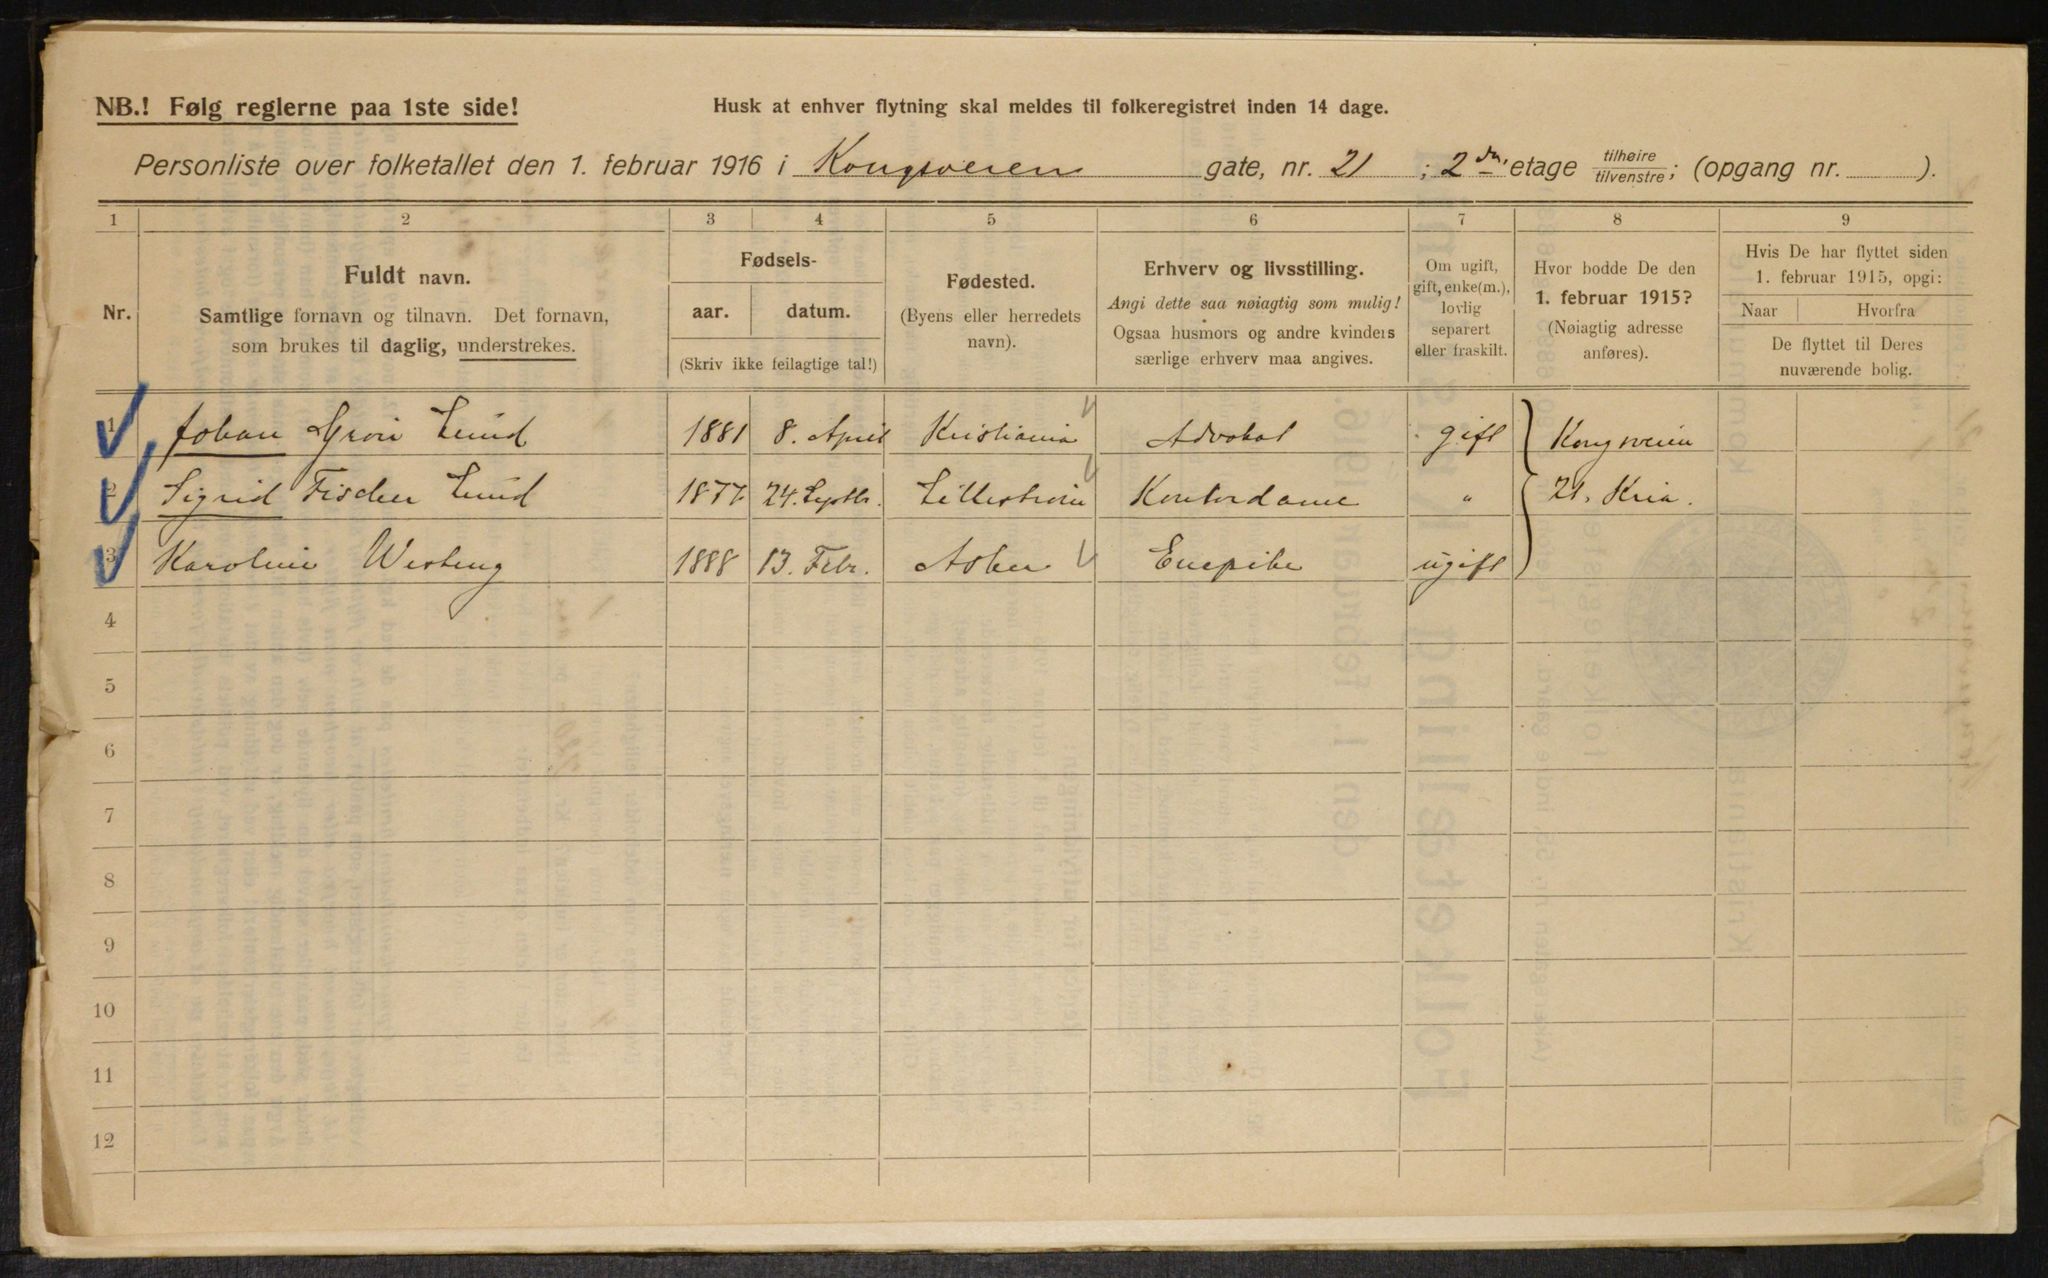 NB.! Følg reglerne paa 1ste side!
Husk at enhver flytning skal meldes til folkeregistret inden 14 dage.
Personliste over folketallet den 1. februar 1916 i Kongsveien gate, nr. 21 ; 2den etage tilhøire tilvenstre; (opgang nr. ).
1 2 3 4 5 6 7 8 9
Nr.
Fuldt navn.
Samtlige fornavn og tilnavn. Det fornavn,
som brukes til daglig, understrekes.
Fødsels-
aar. datum.
(Skriv ikke feilagtige tal!)
Fødested.
(Byens eller herredets
navn).
Erhverv og livsstilling.
Angi dette saa nøiagtig som mulig!
Ogsaa husmors og andre kvinders
særlige erhverv maa angives.
Om ugift,
gift, enke(m.),
lovlig
separert
eller fraskilt.
Hvor bodde De den
1. februar 1915?
(Nøiagtig adresse
anføres).
Hvis De har flyttet siden
1. februar 1915, opgi:
Naar Hvorfra
De flyttet til Deres
nuværende bolig.
1 Johan Grøn Lund 1881 8. April Kristiania Advokat gift Kongsveien
2 Sigrid Fischer Lund 1877 24. Septbr. Lillestrøm Kontordame " 21. Kria.
3 Karoline 1888 13. Febr. Asker Enepike ugift
4
5
6
7
8
9
10
11
12